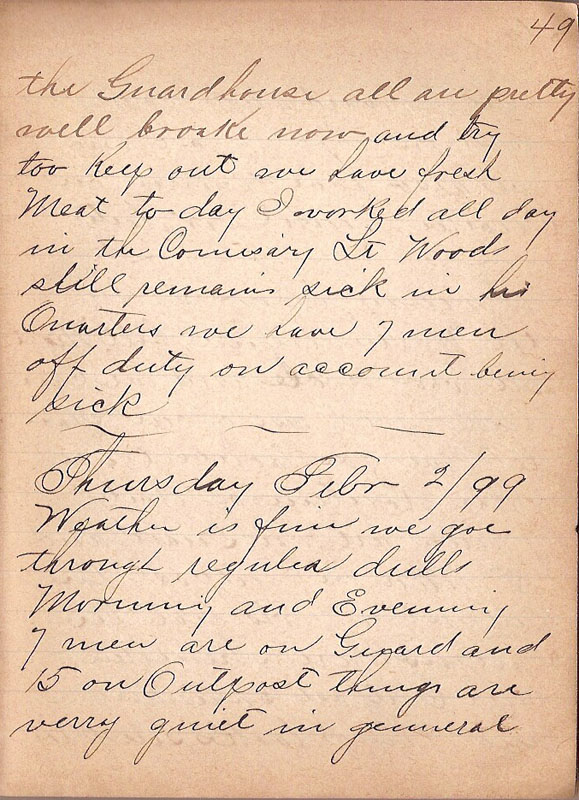 49
the Guardhouse all are pretty
well broake now and try
too keep out we have fresh
Meat to day I worked all day
in the Comisary Lt Woods
still remains sick in his
Quarters we have 7 men
off duty on account being
sick
Thursday Febr 2/99
Weather is fine we goe
through regular drills
Morning and Evening
7 men are on Guard and
15 on Outpost things are
verry quiet in genneral